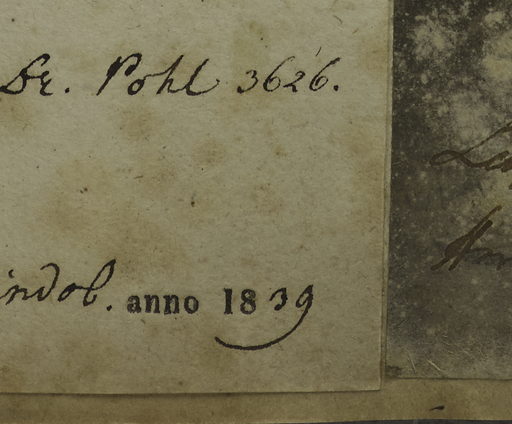 Dr. Pohl 3626.
indob. anno 1839